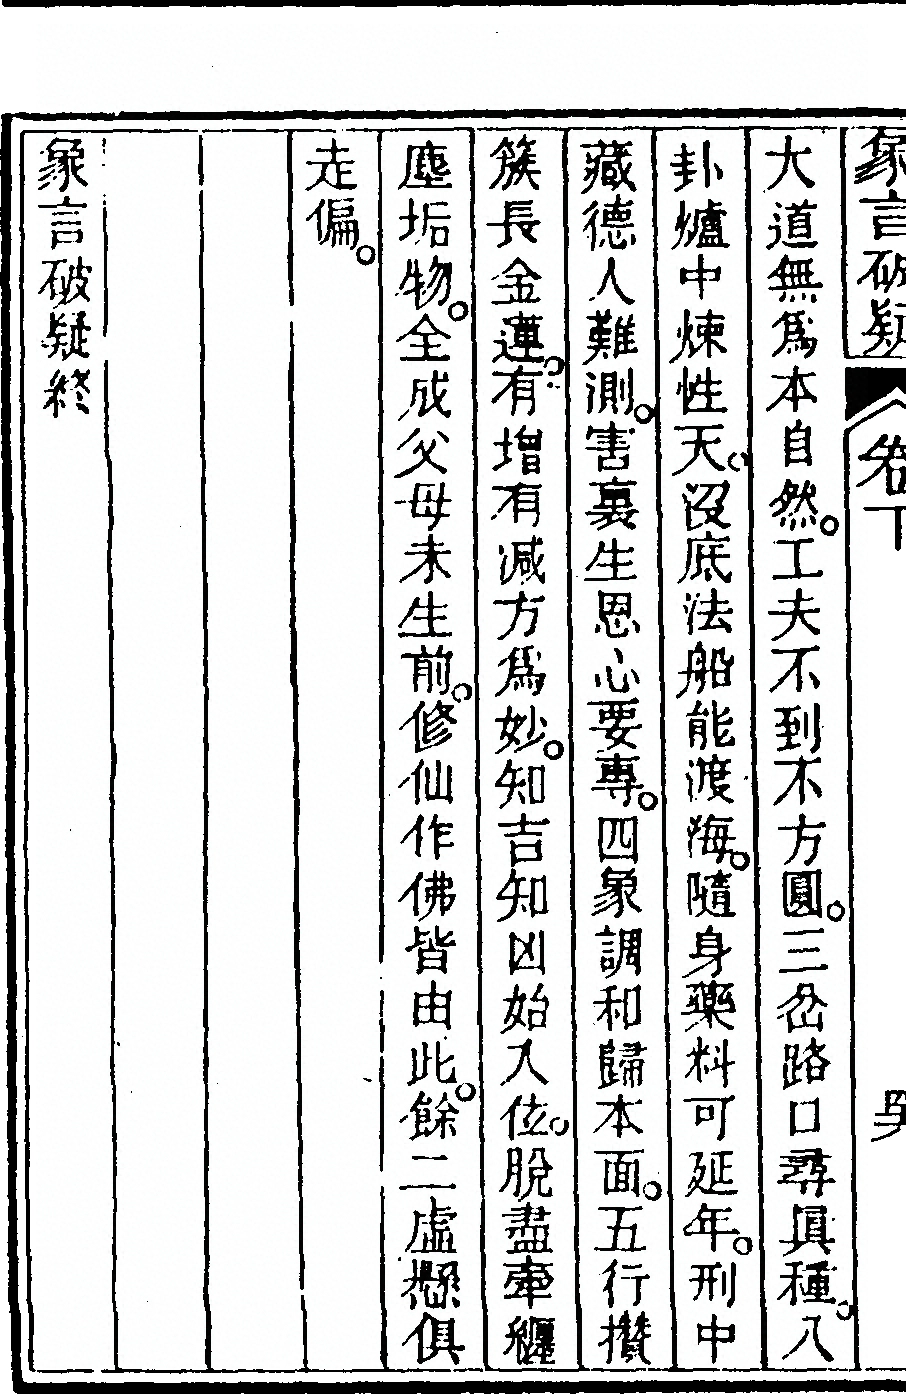 象言破疑 卷下
大道無爲本自然。工夫不到不方圓。三岔路口尋眞種。八
卦爐中煉性天。沒底法船能渡海。隨身藥料可延年。刑中
藏德人難測。害裏生恩心要專。四象調和歸本面。五行攢
簇長金蓮。有增有減方爲妙。知吉知凶始入位。脫盡牽纏
塵垢物。全成父母未生前。修仙作佛皆由此。餘二虛懸俱
走偏。
象言破疑終